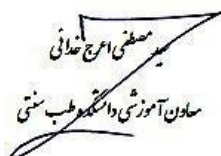 سید مصطفی اعرج خدائی
معاون آموزشی دانشکده طب سنتی